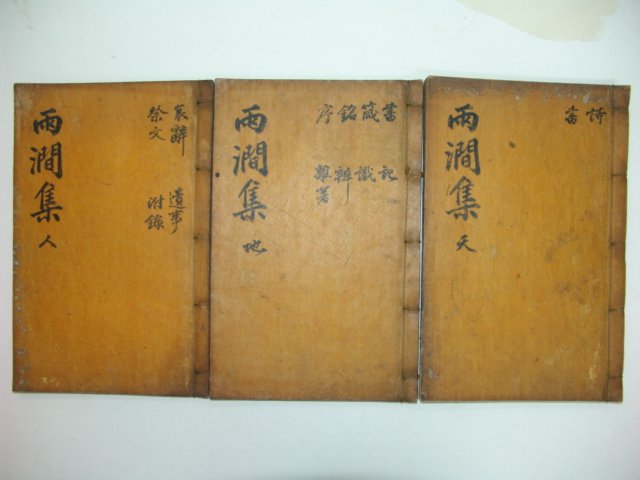 雨澗集 天
詩
書
雨澗集 地
書 記
箴 識
銘 辨
序 雜著
雨澗集 人
哀辭 遺事
祭文 附錄